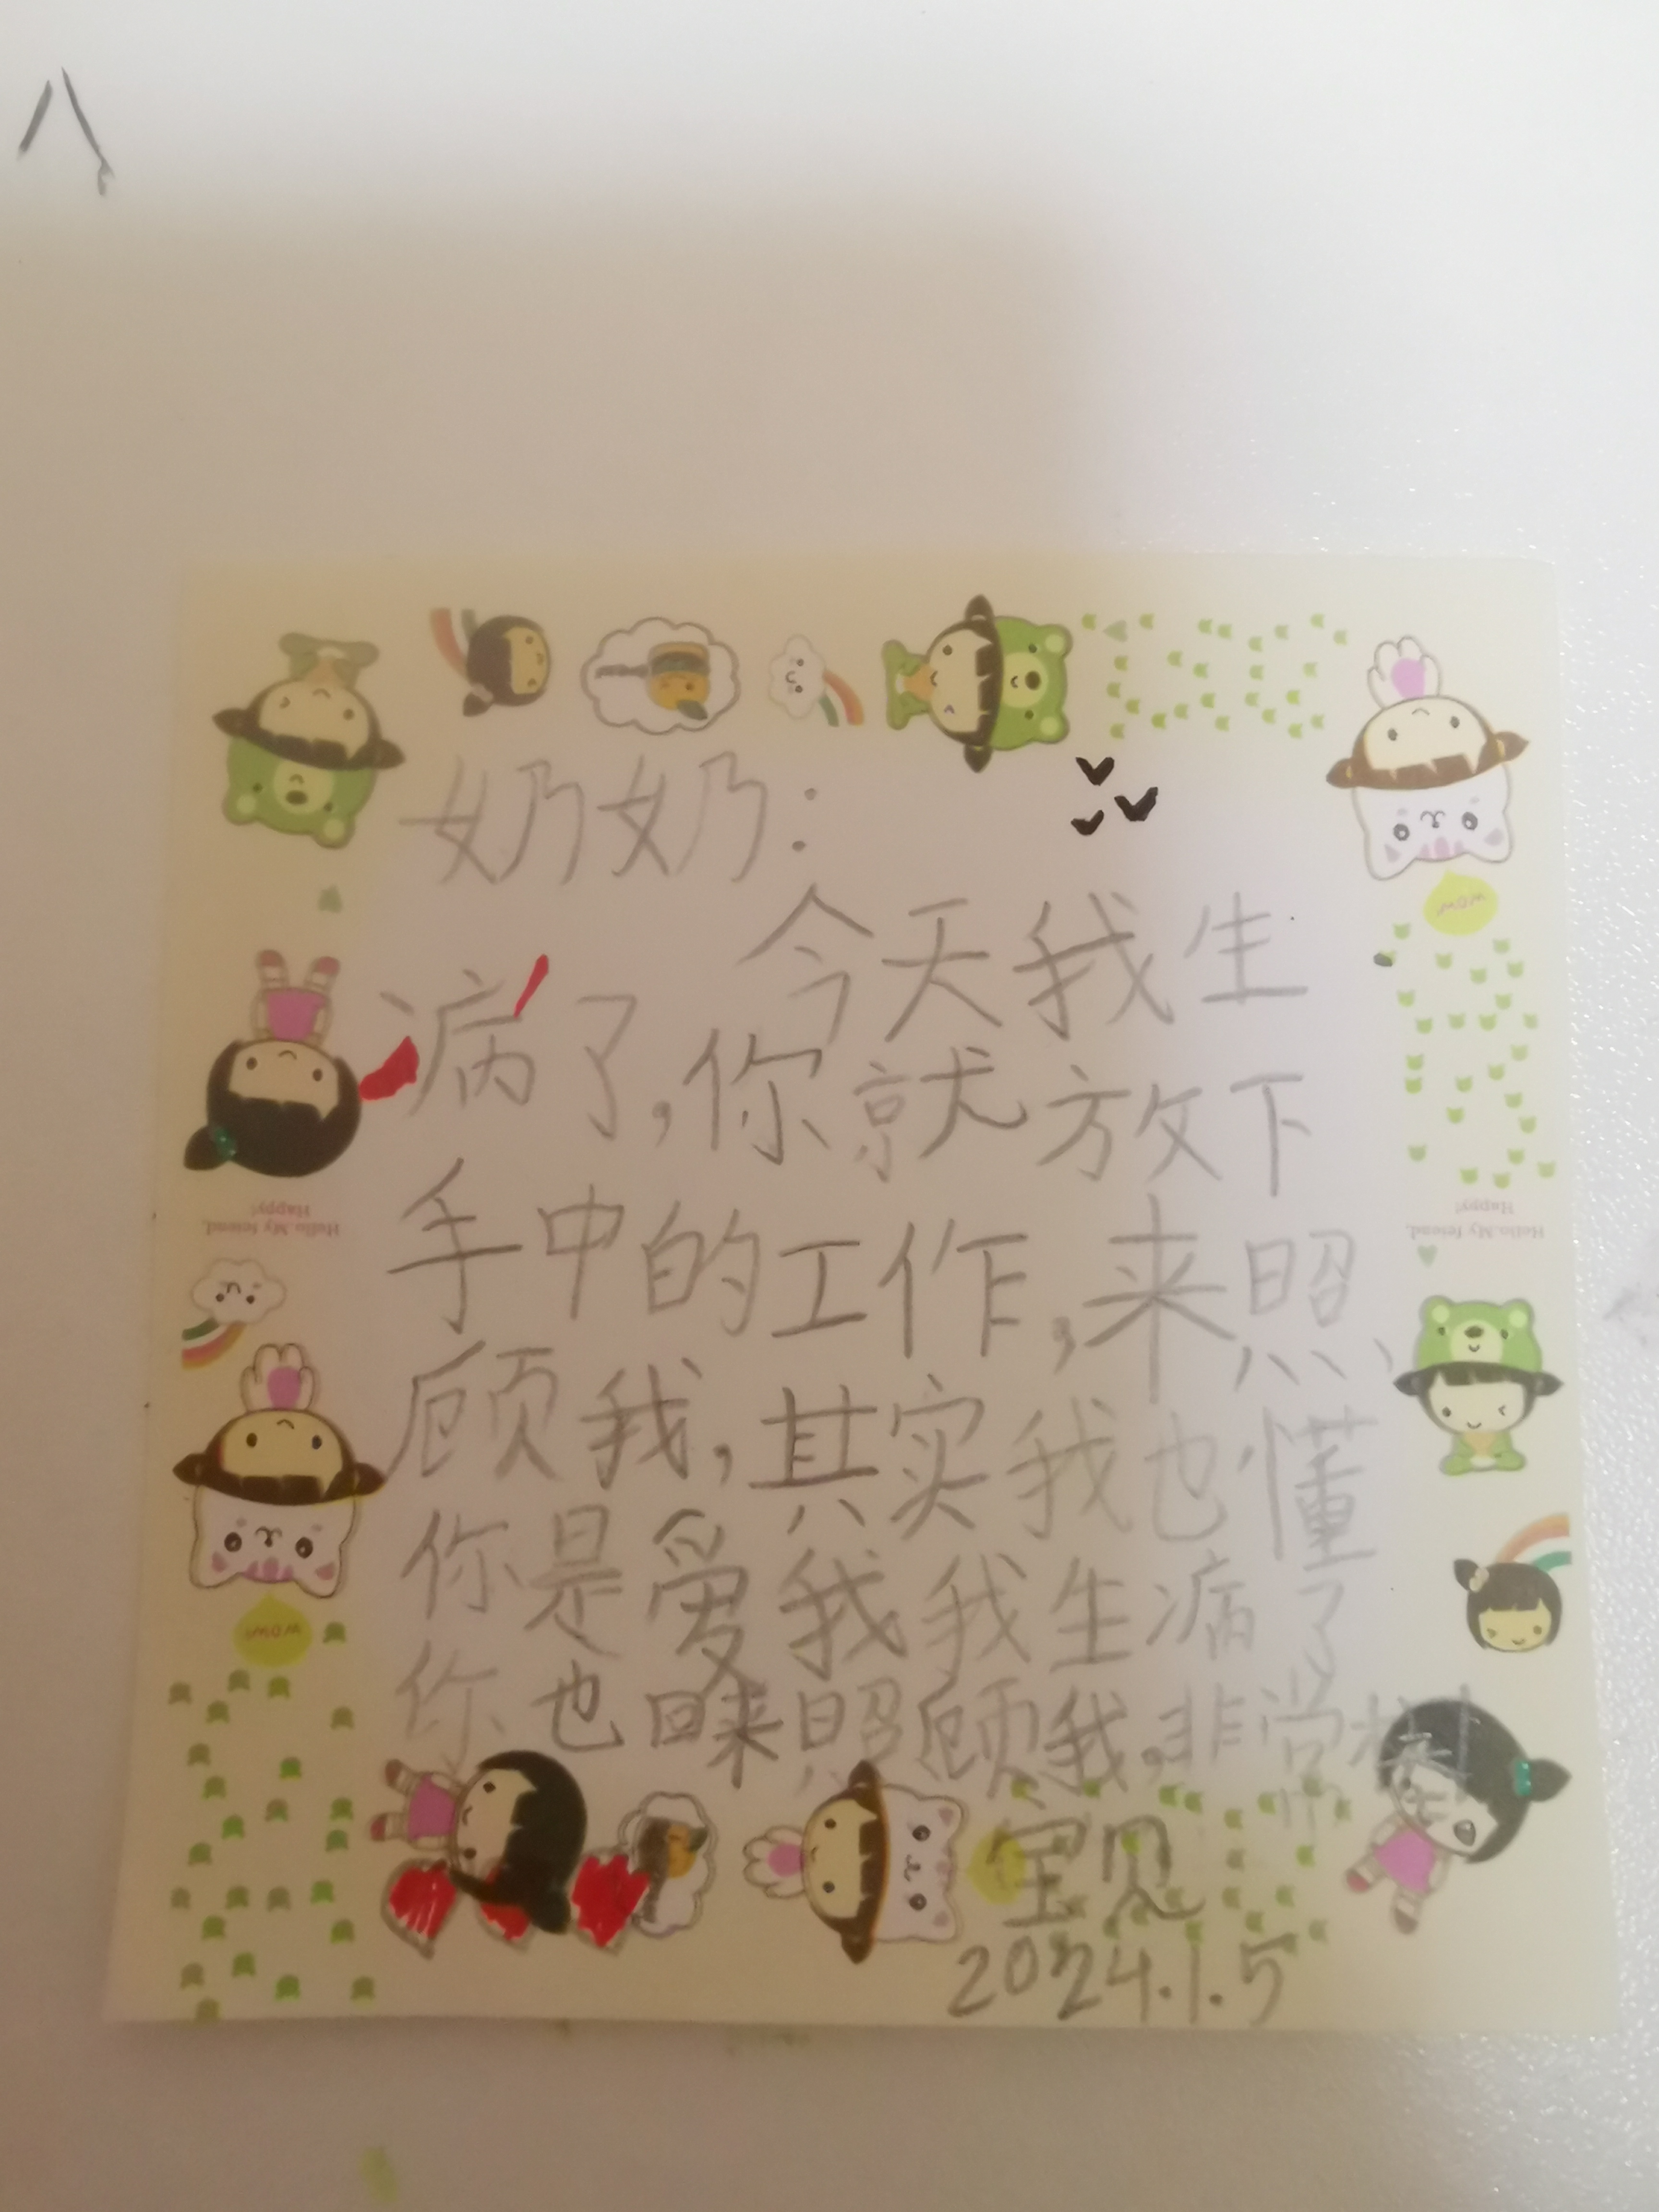 八
奶奶：
今天我生
病了,你就放下
手中的工作,来照
顾我,其实我也懂
你是爱我我生病了
你也回来照顾我.非常
宝贝
2024.1.5
wow!
Hello.My friend.
Happy!
wow!
Hello.My friend.
Happy!